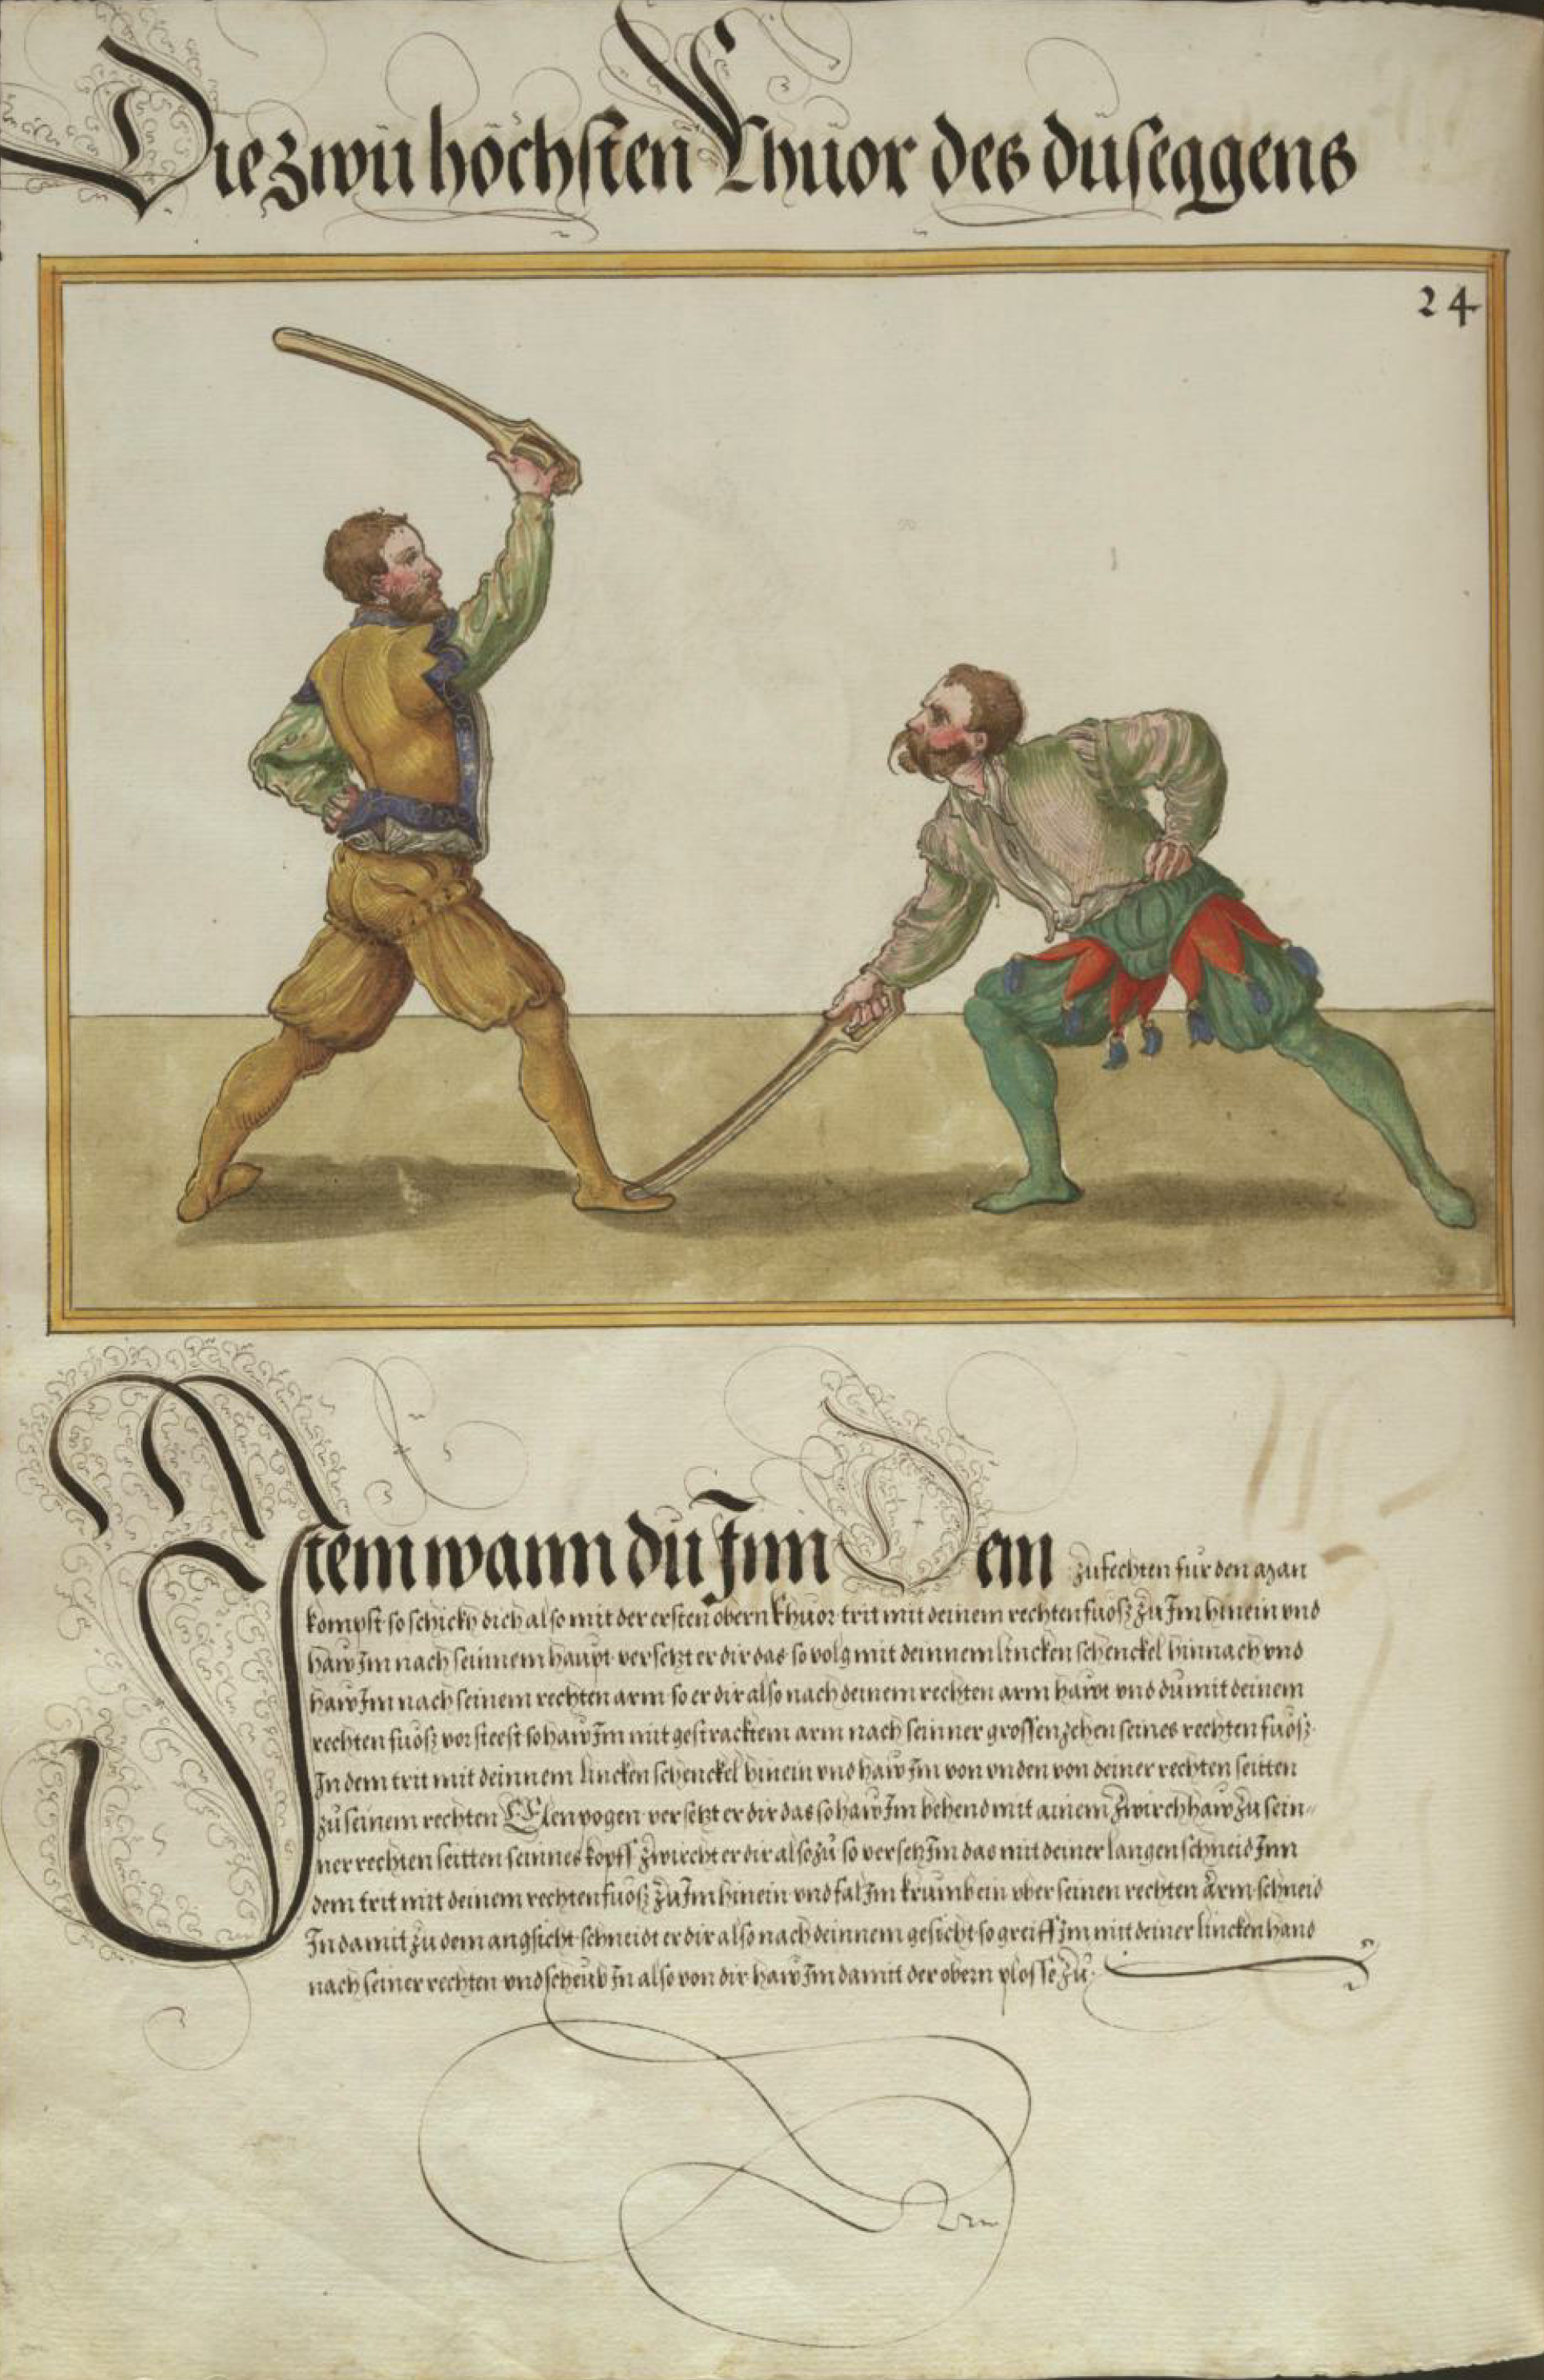 Die zwu höchsten Khuor des duseggens
24
Item wann du Inn Dem zufechten fur den man
kompst so schickh dich also mit der ersten obern khuor trit mit deinem rechten fuosz zu Im hinein vnd
haw Im nach seinnem haupt versetzt er dir das so volg mit deinnem lincken schenckel hinnach vnd
haw Im nach seinem rechten arm so er dir also nach deinem rechten arm hawt vnd du mit deinem
rechten fuosz vor steest so haw Im mit gestracktem arm nach seinner grossen zehen seines rechten fuosz
In dem trit mit deinnem lincken schenckel hinein vnd haw Im von vnden von deiner rechten seitten
zu seinem rechten Elenpogen versetzt er dir das so haw Im behend mit ainem zwirchhaw zu sein=
ner rechten seitten seinnes kopff zwircht er dir also zu so versetz Im das mit deiner langen schneid Inn
dem trit mit deinem rechten fuosz zu Im hinein vnd fal Im krumb ein vber seinen rechten Arm schneid
In damit zu dem angsicht schneidt er dir also nach deinnem gesicht so greiff Im mit deiner lincken hand
nach seiner rechten vnd scheub In also von dir haw Im damit der obern plosse zu